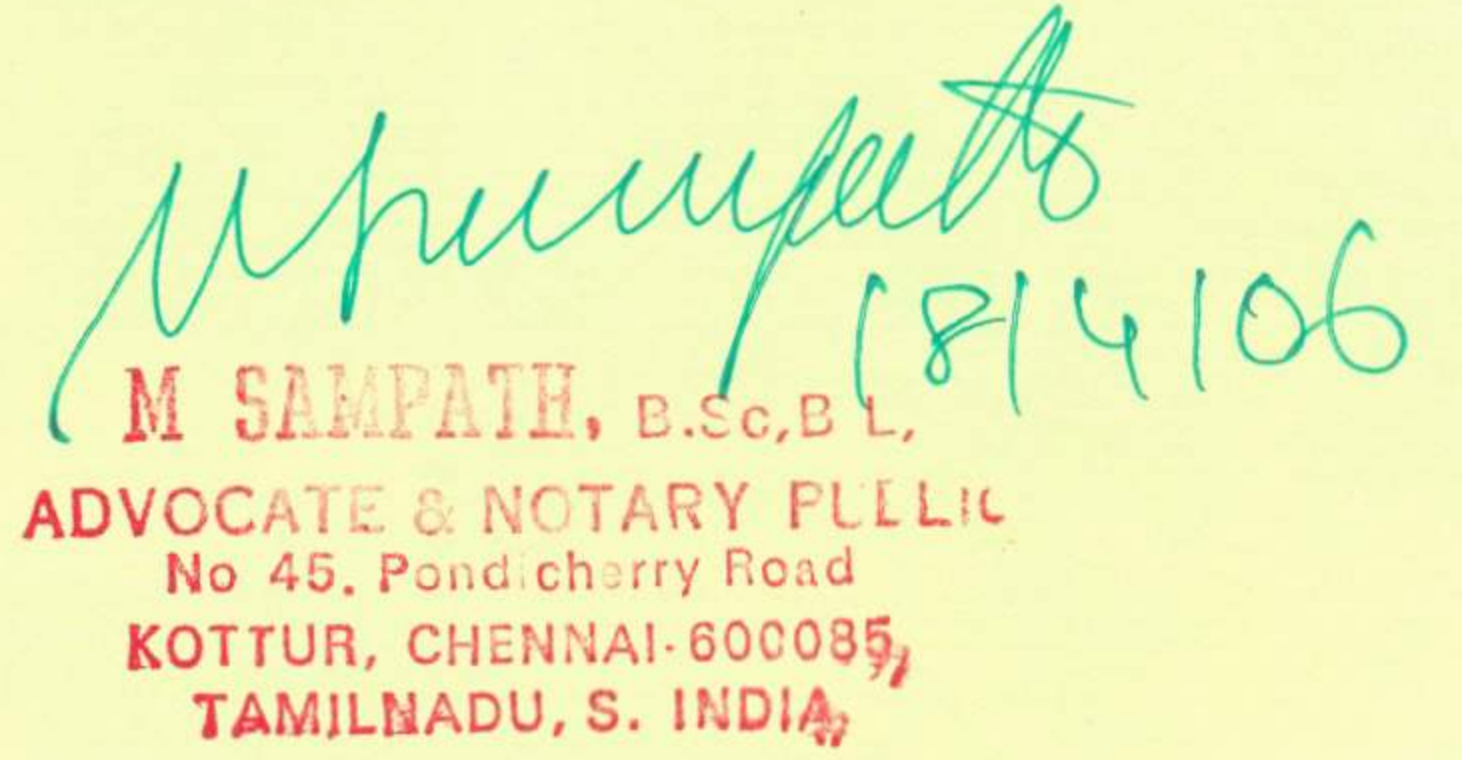 M Sampath
18/4/06
M SAMPATH, B.Sc,B L,
ADVOCATE & NOTARY PUBLIC
No 45. Pondicherry Road
KOTTUR, CHENNAI-600085,
TAMILNADU, S. INDIA,